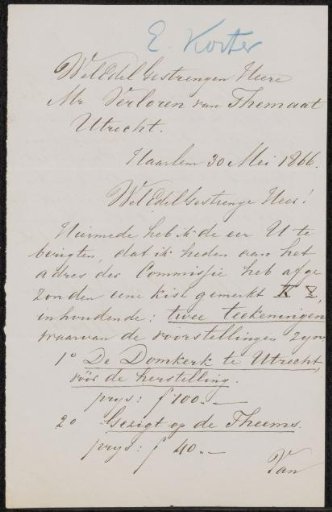 E. Koster
WelEdelGestrengen Heere
Mr. Verloren van Themaat
Utrecht.
Haarlem 30 Mei 1866.
WelEdelGestrenge Heer!
Hiermede heb ik de eer U te
berigten, dat ik heden aan het
adres des Commissie heb afge
zonden eene kist gemerkt K
inhoudende: twee teekeningen
waarvan de voorstellingen zijn,
1° De Domkerk te Utrecht,
vóór de herstelling.
prijs: f 100.—
2° Gezigt op de Theems.
prijs: f 40.—
Van